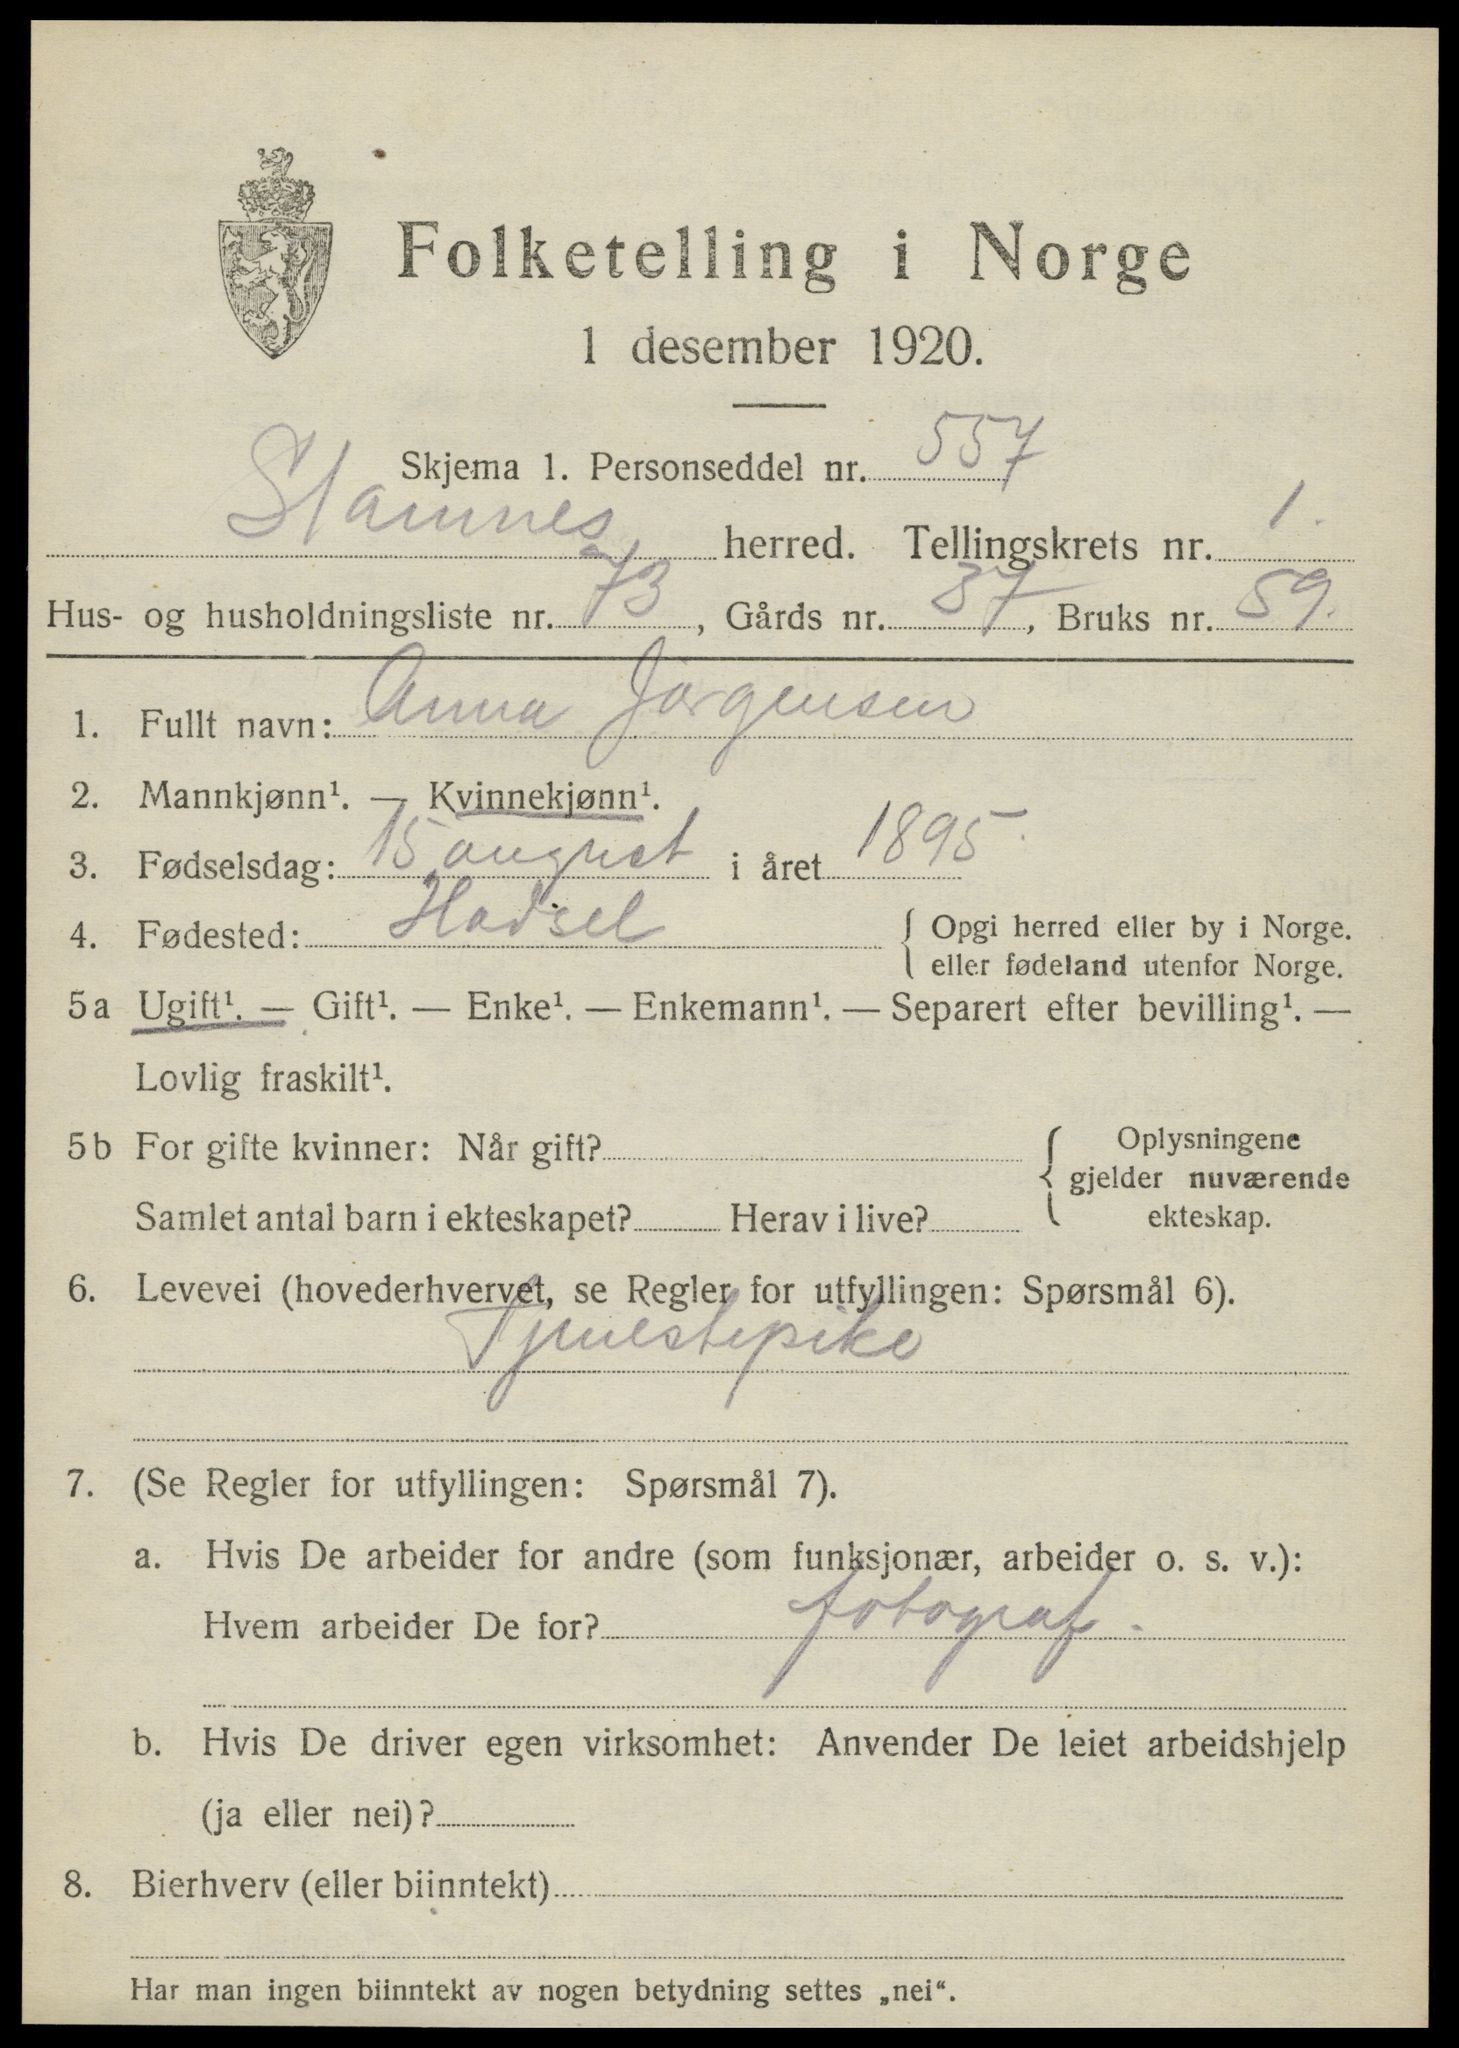 Folketelling i Norge
1 desember 1920.
Skjema 1. Personseddel nr. 557
Stamnes herred. Tellingskrets nr. 1.
Hus- og husholdningsliste nr. 73, Gårds nr. 37, Bruks nr. 59.
1. Fullt navn: Anna Jørgensen
2. Mannkjønn¹. — Kvinnekjønn¹.
3. Fødselsdag: 15 august i året 1895.
4. Fødested: Hadsel { Opgi herred eller by i Norge.
eller fødeland utenfor Norge.
5a Ugift¹. — Gift¹. — Enke¹. — Enkemann¹. — Separert efter bevilling¹. —
Lovlig fraskilt¹.
5b For gifte kvinner: Når gift? { Oplysningene
gjelder nuværende
Samlet antal barn i ekteskapet? Herav i live? ekteskap.
6. Levevei (hovederhvervet, se Regler for utfyllingen: Spørsmål 6).
Tjenestepike
7. (Se Regler for utfyllingen: Spørsmål 7).
a. Hvis De arbeider for andre (som funksjonær, arbeider o. s. v.):
Hvem arbeider De for? fotograf.
b. Hvis De driver egen virksomhet: Anvender De leiet arbeidshjelp
(ja eller nei)?
8. Bierhverv (eller biinntekt)
Har man ingen biinntekt av nogen betydning settes „nei“.